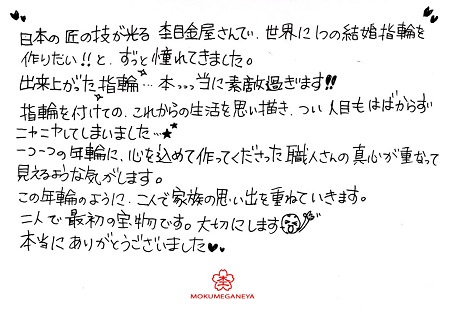 日本の匠の技が光る 杢目金屋さんで、世界に1つの結婚指輪を
作りたい!!と、ずっと憧れてきました。
出来上がった指輪…本っっっ当に素敵過ぎます!!
指輪を付けての、これからの生活を思い描き、つい人目もはばからず
ニヤニヤしてしまいました…★
一つ一つの年輪に、心を込めて作ってくださった職人さんの真心が重なって
見えるような気がします。
この年輪のように、二人で家族の思い出を重ねていきます。
二人で最初の宝物です。大切にします
本当にありがとうございました♥
MOKUMEGANEYA